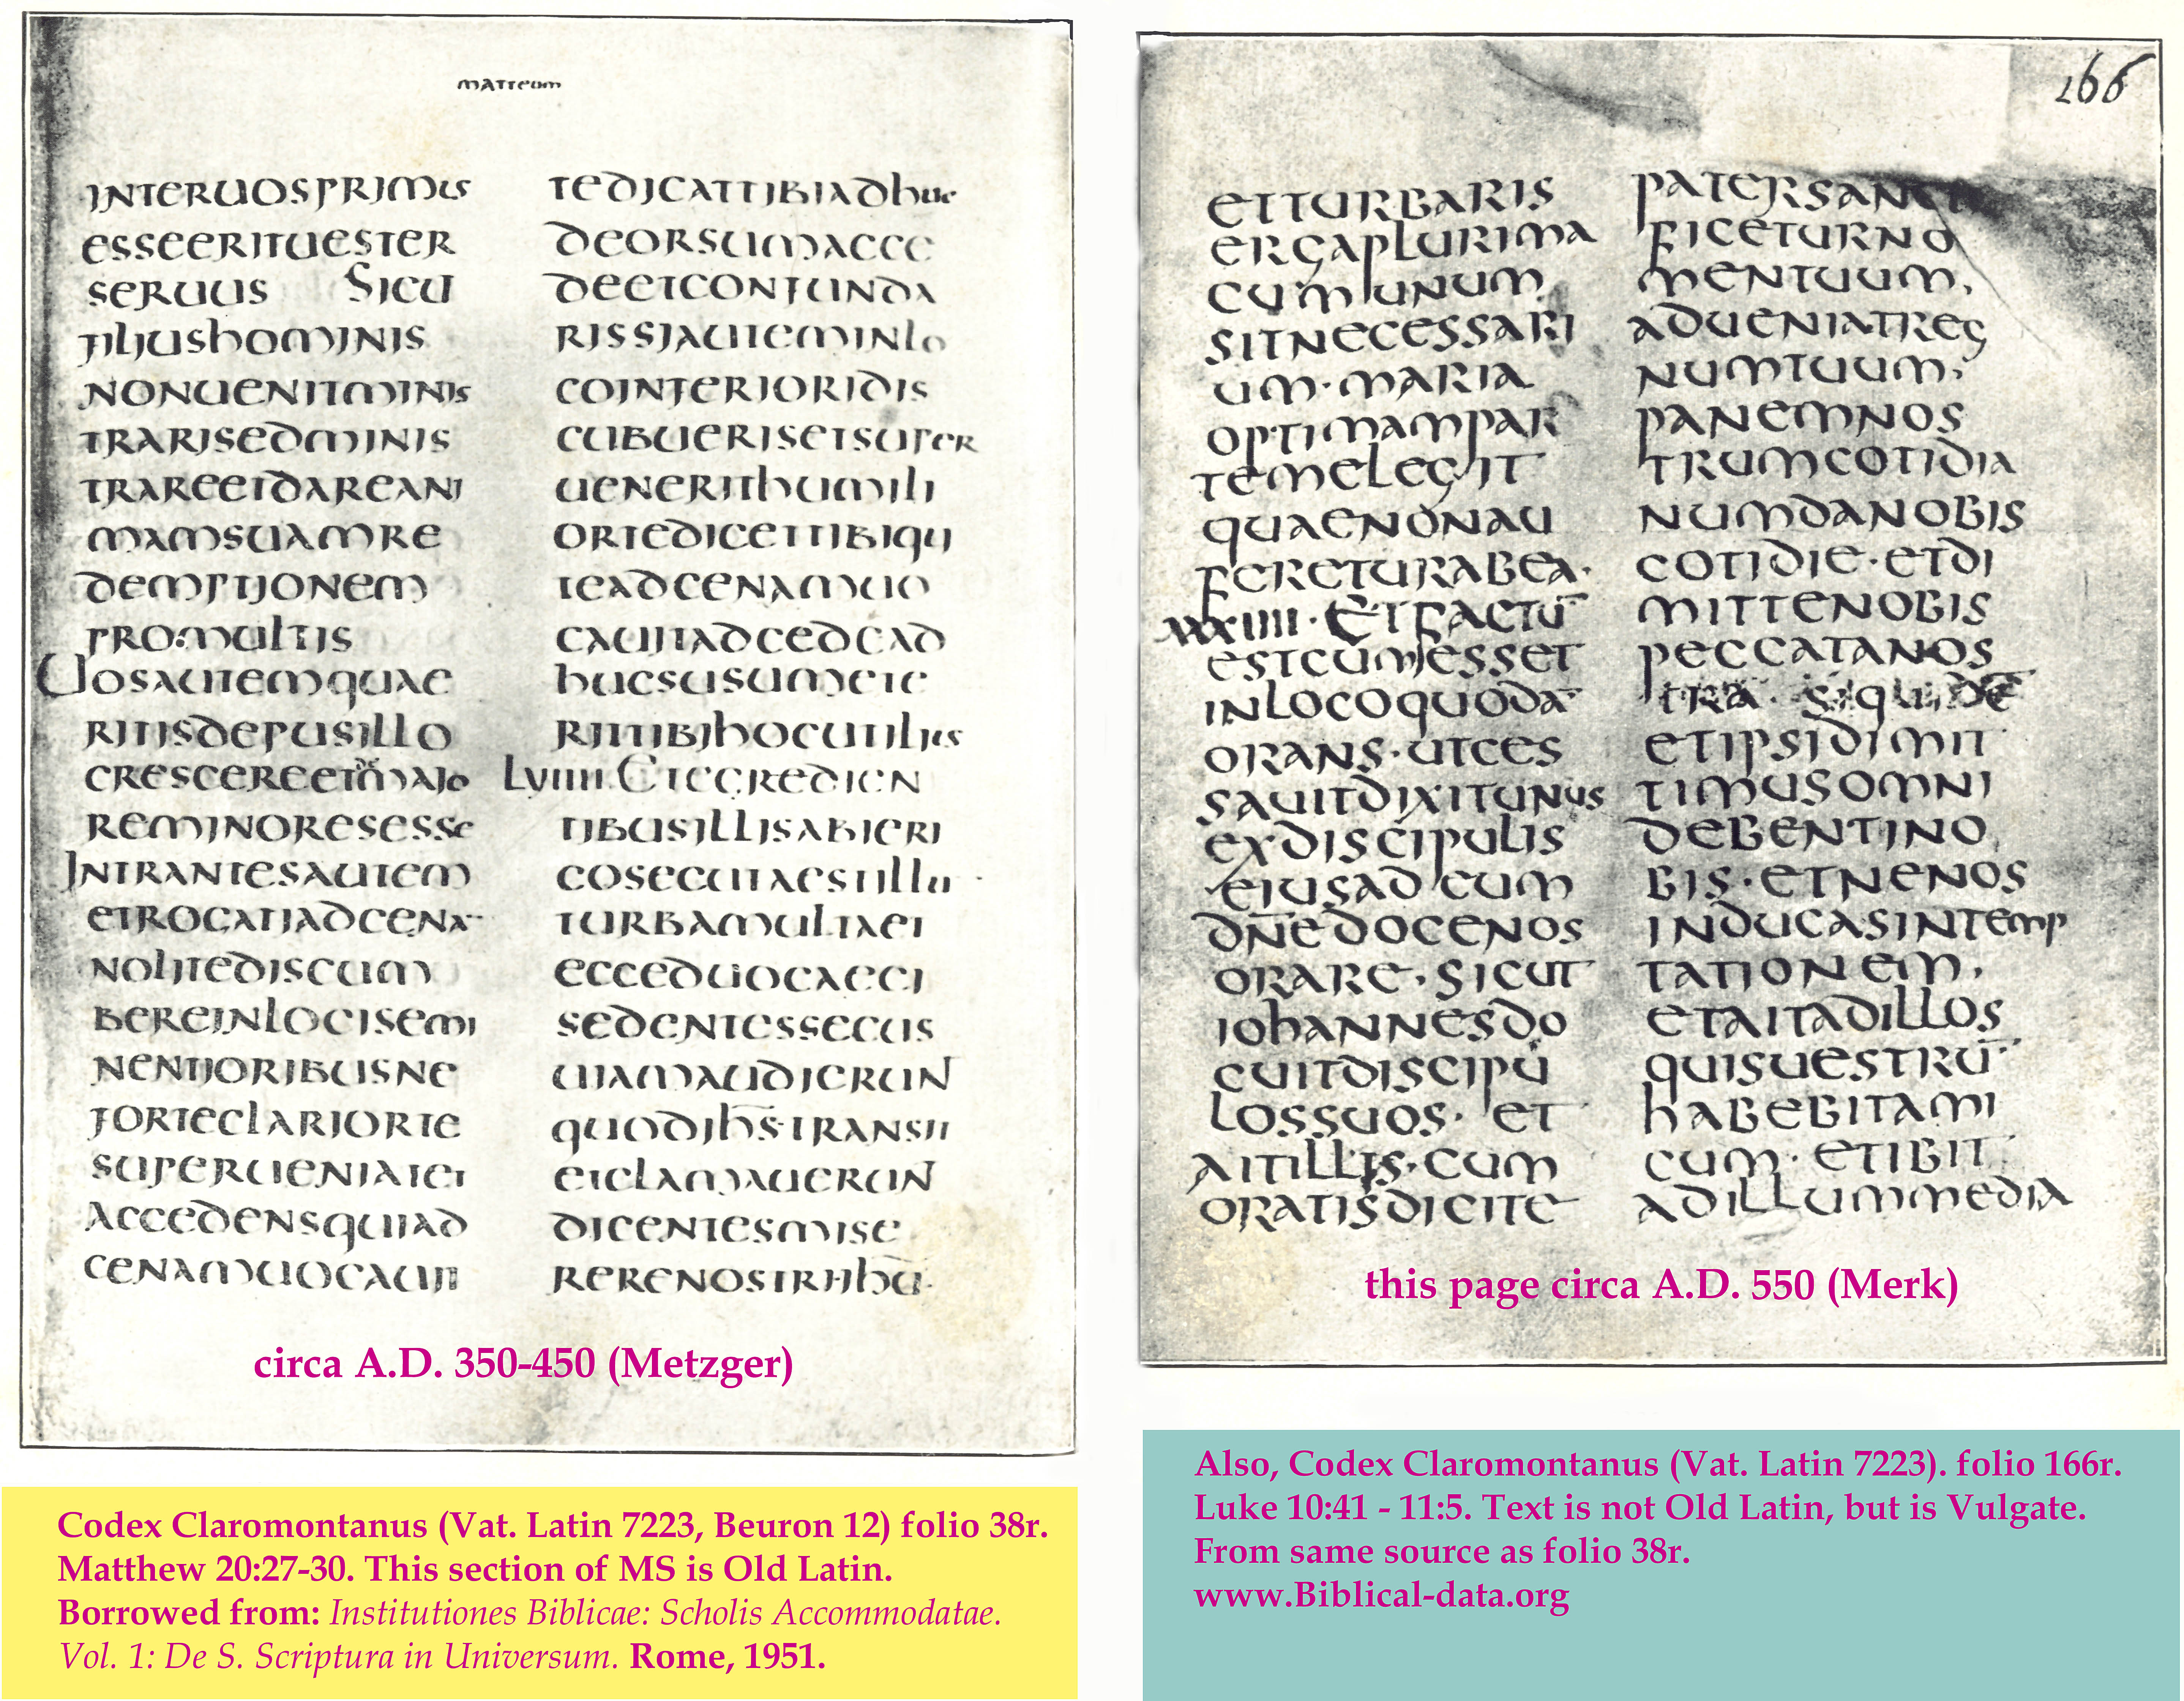 matteum
INTERUOSPRIMUS
ESSEERITUESTER
SERUUS SICU
FILIUSHOMINIS
NONUENITMINIS
TRARISEDMINIS
TRAREETDAREANI
MAMSUAMRE
DEMPTIONEM
PROMULTIS
UOSAUTEMQUAE
RITISDEPUSILLO
CRESCEREET MAIO
REMINORESESSE
INTRANTESAUTEM
ETROGATIADCENA
NOLITEDISCUM
BEREINLOCISEMI
NENTIORIBUSNE
FORTECLARIORTE
SUPERUENIATET
ACCEDENSQUIAD
CENAMUOCAUIT
TEDICATTIBIADHUC
DEORSUMACCE
DEETCONFUNDA
RISSIAUTEMINLO
COINFERIORIDIS
CUBUERISETSUPER
UENERITHUMILI
ORTEDICETTIBIQU
TEADCENAMUO
CAUITADCEDEAD
HUCSUSUMETE
RITTIBIHOCUTILIUS
LVIIII ETEGREDIEN
TIBUSILLISABIERI
COSECUTAESTILLU
TURBAMULTAET
ECCEDUOCAECI
SEDENTESSECUS
UIAMAUDIERUN
QUODIHSTRANSIT
ETCLAMAUERUN
DICENTESMISE
circa A.D. 350-450 (Metzger)
Codex Claromontanus (Vat. Latin 7223, Beuron 12) folio 38r.
Matthew 20:27-30. This section of MS is Old Latin.
Borrowed from: Institutiones Biblicae: Scholis Accommodatae.
Vol. 1: De S. Scriptura in Universum. Rome, 1951.
166
ETTURBARIS
ERGAPLURIMA
CUMUNUM
SITNECESSARI
UM·MARIA
OPTIMAMPAR
TEMELEGIT
QUAENONAU
FERETURABEA·
XXXIIII·ETFACTŪ
ESTCUMESSET
INLOCOQUODĀ
ORANS·UTCES
SAUITDIXITUNUS
EXDISCIPULIS
EIUSADEUM
DN̄EDOCENOS
ORARE·SICUT
IOHANNESDO
CUITDISCIPU
LOSSUOS·ET
AITILLIS·CUM
ORATISDICITE
PATERSANCTI
FICETURNO
MENTUUM,
ADUENIATREG
NUMTUUM,
PANEMNOS
TRUMCOTIDIA
NUMDANOBIS
COTIDIE·ETDI
MITTENOBIS
PECCATANOS
TRA· SIQUIDĒ
ETIPSIDIMIT
TIMUSOMNI
DEBENTINO
BIS·ETNENOS
INDUCASINTEMP
TATIONEM,
ETAITADILLOS
QUISUESTRŪ
HABEBITAMI
CUM·ETIBIT
ADILLUMMEDIA
this page circa A.D. 550 (Merk)
Also, Codex Claromontanus (Vat. Latin 7223). folio 166r.
Luke 10:41 - 11:5. Text is not Old Latin, but is Vulgate.
From same source as folio 38r.
www.Biblical-data.org